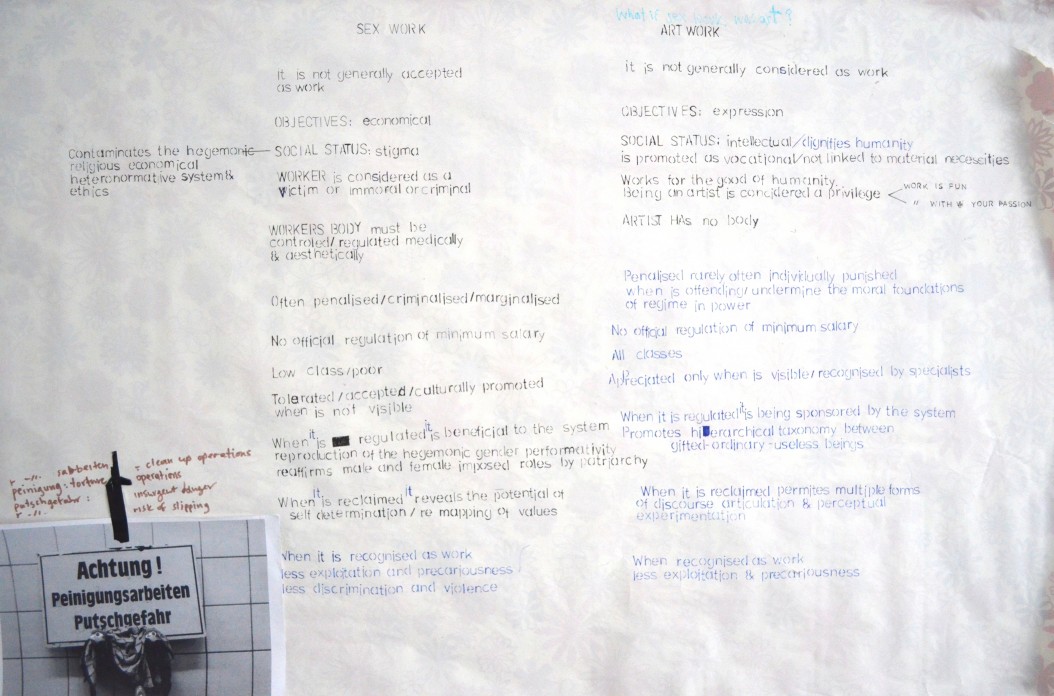 What if
SEX WORK
it is not generally accepted
as work
OBJECTIVES: economical
Contaminates the hegemonic
religious economical
heteronormative system &
ethics
SOCIAL STATUS: stigma
WORKER is considered as a
victim or immoral or criminal
WORKERS BODY must be
controled/regulated medically
& aesthetically
Often penalised/criminalised/marginalised
No official regulation of minimum salary
Low class/poor
Tolerated/accepted/culturally promoted
when is not visible
When it is regulated it is beneficial to the system
reproduction of the hegemonic gender performativity
reaffirms male and female imposed roles by patriarchy
When it is reclaimed it reveals the potential of
self determination / re mapping of values
When it is recognised as work
less explotation and precariousness
less discrimination and violence
ART WORK
it is not generally considered as work
OBJECTIVES: expression
SOCIAL STATUS: intellectual/dignifies humanity
is promoted as vocational/not linked to material necesities
Works for the good of humanity.
Being an artist is concidered a privilege
WORK IS FUN
" WITH YOUR PASSION
ARTIST HAs no body
Penalised rarely often individually punished
when is offending/undermine the moral foundations
of regime in power
No official regulation of minimum salary
All classes
Appreciated only when is visible/recognised by specialists
When it is regulated it is being sponsored by the system
Promotes hierarchical taxonomy between
gifted-ordinary-useless beings
When it is reclaimed permites multiple forms
of discourse articulation & perceptual
experimentation
When recognised as work
less exploitation & precariousness
r -"- sarbeiten = clean up operations
peinigung: torture operations
putschgefahr: insurgent danger
r -"- risk of slipping
Achtung!
Peinigungsarbeiten
Putschgefahr